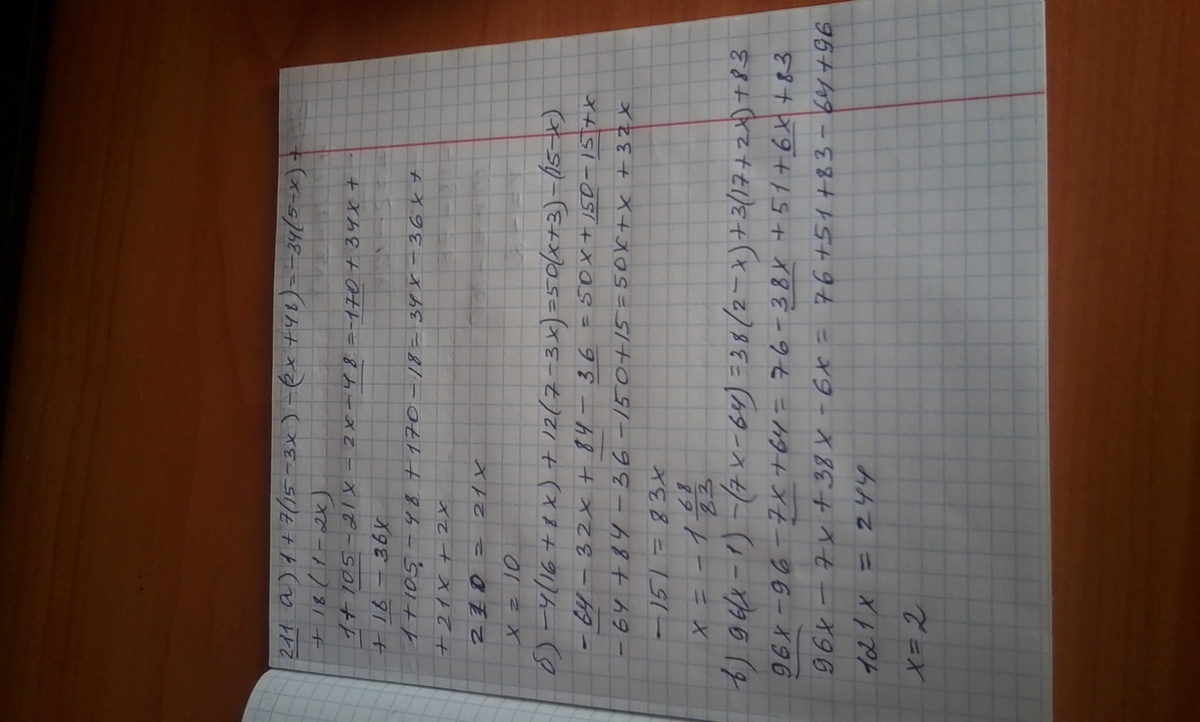 211 а) 1+7(15-3x)-(2x+48)=-34(5-x)+
+18(1-2x)
1+105-21x-2x-48=-170+34x+
+18-36x
1+105-48+170-18=34x-36x+
+21x+2x
210=21x
x=10
б) -4(16+8x)+12(7-3x)=50(x+3)-(15-x)
-64-32x+84-36=50x+150-15+x
-64+84-36-150+15=50x+x+32x
-151=83x
x=-1 68/83
в) 96(x-1)-(7x-64)=38(2-x)+3(17+2x)+83
96x-96-7x+64=76-38x+51+6x+83
96x-7x+38x-6x=76+51+83-64+96
121x=244
x=2